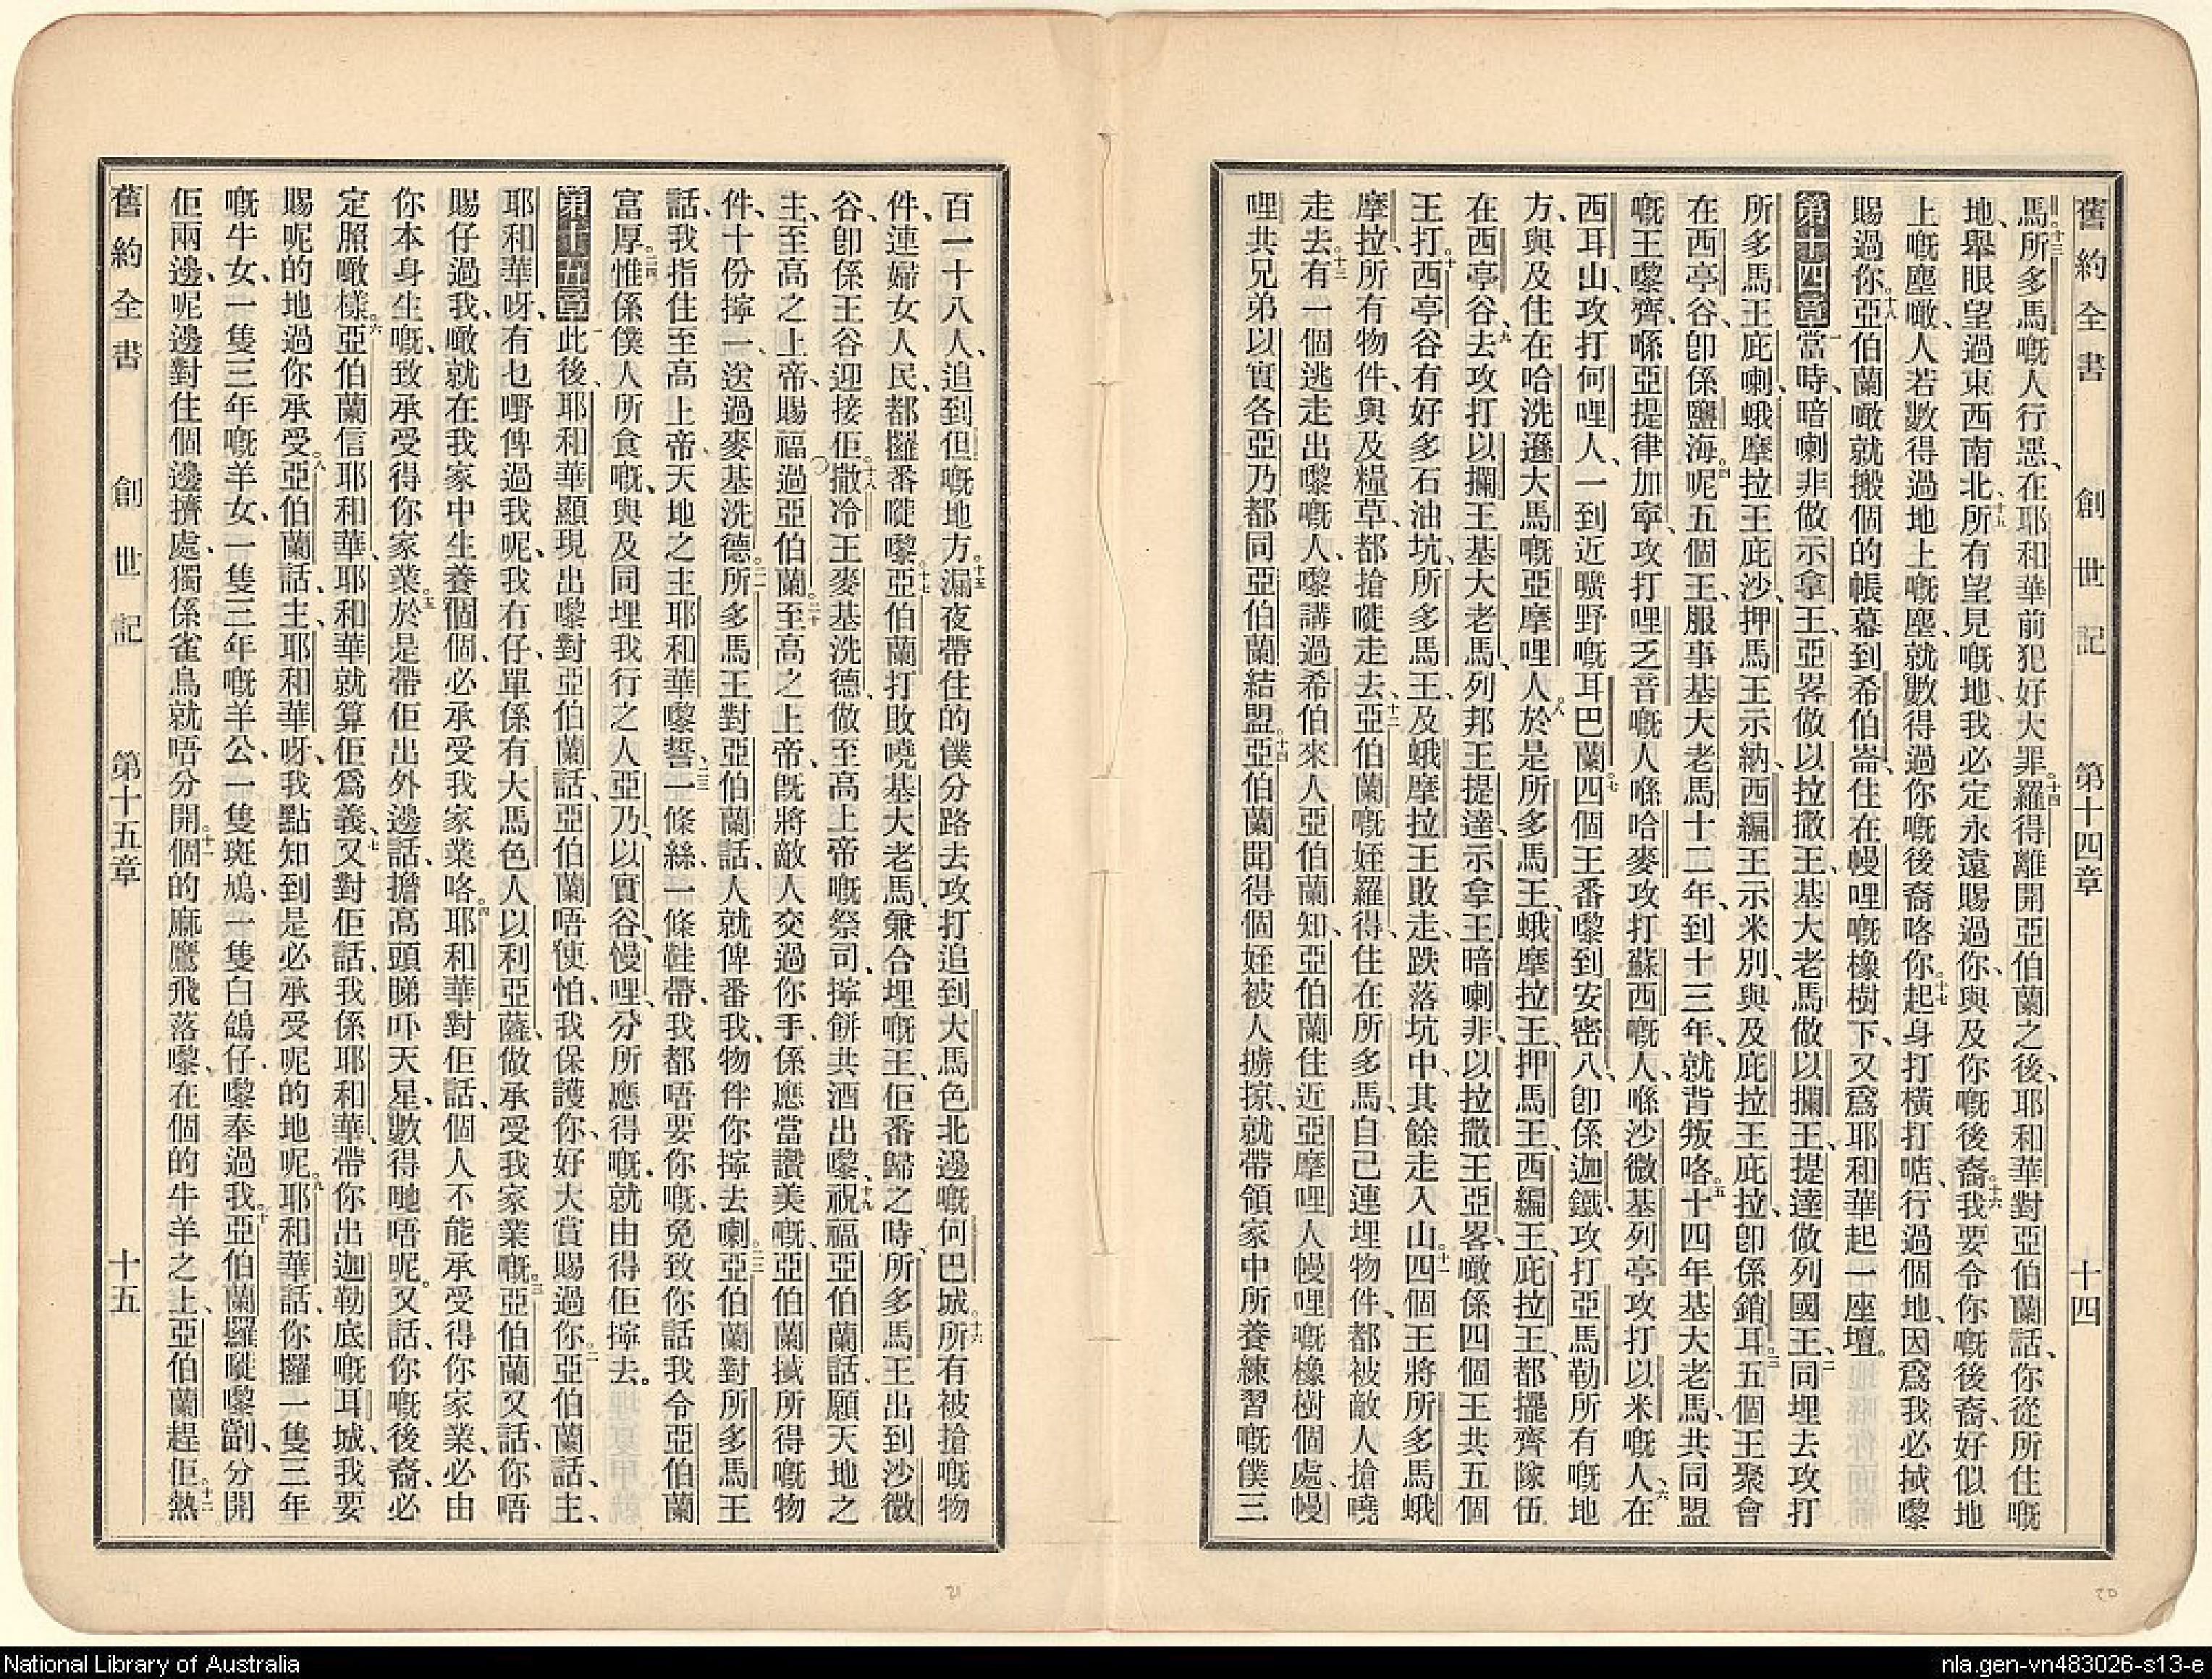 舊約全書 創世記 第十四章 十四
馬十三所多馬嘅人行惡、在耶和華前犯好大罪。十四羅得離開亞伯蘭之後、耶和華對亞伯蘭話、你從所住嘅
地、舉眼望過東西南北、十五所有望見嘅地、我必定永遠賜過你、與及你嘅後裔。十六我要令你嘅後裔、好似地
上嘅塵噉、人若數得過地上嘅塵、就數得過你嘅後裔咯。十七你起身打橫打㖭、行過個地、因爲我必𢬿嚟
賜過你。十八亞伯蘭噉就搬個的帳幕到希伯崙、住在幔哩嘅橡樹下、又爲耶和華起一座壇。
第十四章 一當時、暗喇非做示拿王、亞畧做以拉撒王、基大老馬做以攔王、提達做列國王、二同埋去攻打
所多馬王庇喇、蛾摩拉王庇沙、押馬王示納、西編王示米別、與及庇拉王庇拉、卽係銷耳。三五個王聚會
在西亭谷、卽係鹽海。四呢五個王、服事基大老馬十二年、到十三年、就背叛咯。五十四年基大老馬、共同盟
嘅王嚟齊、喺亞提律加寧、攻打哩乏音嘅人、喺哈麥攻打蘇西嘅人、喺沙微基列亭攻打以米嘅人、六在
西耳山、攻打何哩人、一到近曠野嘅耳巴蘭。七四個王番嚟到安密八、卽係迦鐵、攻打亞馬勒所有嘅地
方、與及住在哈洗遜大馬嘅亞摩哩人。八於是所多馬王、蛾摩拉王、押馬王、西編王、庇拉王、都擺齊隊伍
在西亭谷、九去攻打以攔王基大老馬、列邦王提達、示拿王暗喇非、以拉撒王亞畧、噉係四個王共五個
王打。十西亭谷有好多石油坑、所多馬王、及蛾摩拉王敗走、跌落坑中、其餘走入山。十一四個王將所多馬蛾
摩拉、所有物件、與及糧草、都搶嘥走去、十二亞伯蘭嘅姪羅得、住在所多馬、自己連埋物件、都被敵人搶曉
走去。十三有一個逃走出嚟嘅人、嚟講過希伯來人亞伯蘭知、亞伯蘭住近亞摩哩人幔哩嘅橡樹個處、幔
哩共兄弟以實各、亞乃都同亞伯蘭結盟。十四亞伯蘭聞得個姪被人擄掠、就帶領家中所養練習嘅僕三
百一十八人、追到但嘅地方。十五漏夜帶住的僕分路去攻打、追到大馬色北邊嘅何巴城。十六所有被搶嘅物
件、連婦女人民、都攞番嘥嚟。十七亞伯蘭打敗曉基大老馬、兼合埋嘅王、佢番歸之時、所多馬王出到沙微
谷、卽係王谷迎接佢。十八撒冷王麥基洗德、做至高上帝嘅祭司、擰餅共酒出嚟、十九祝福亞伯蘭話、願天地之
主、至高之上帝、賜福過亞伯蘭。二十至高之上帝、旣將敵人交過你手、係應當讚美嘅、亞伯蘭𢬿所得嘅物
件、十份擰一、送過麥基洗德。二一所多馬王對亞伯蘭話、人就俾番我、物件你擰去喇。二二亞伯蘭對所多馬王
話、我指住至高上帝、天地之主耶和華嚟誓、二三一條絲、一條鞋帶、我都唔要你嘅、免致你話我令亞伯蘭
富厚。二四惟係僕人所食嘅、與及同埋我行之人亞乃、以實谷、幔哩、分所應得嘅、就由得佢擰去。
第十五章 一此後、耶和華顯現出嚟、對亞伯蘭話、亞伯蘭唔使怕、我保護你、好大賞賜過你。二亞伯蘭話、主、
耶和華呀、有乜嘢俾過我呢、我冇仔、單係有大馬色人以利亞薩、做承受我家業嘅。三亞伯蘭又話、你唔
賜仔過我、噉就在我家中生養個個、必承受我家業咯。四耶和華對佢話、個人不能承受得你家業、必由
你本身生嘅、致承受得你家業。五於是帶佢出外邊話、擔高頭睇吓天星、數得哋唔呢。又話、你嘅後裔、必
定照噉樣。六亞伯蘭信耶和華、耶和華就算佢爲義、七又對佢話、我係耶和華、帶你出迦勒底嘅耳城、我要
賜呢的地過你承受。八亞伯蘭話、主、耶和華呀、我點知到是必承受呢的地呢。九耶和華話、你攞一隻三年
嘅牛女、一隻三年嘅羊女、一隻三年嘅羊公、一隻斑鳩、一隻白鴿仔、嚟奉過我。十亞伯蘭攞嘥嚟劏、分開
佢兩邊、呢邊對住個邊擠處、獨係雀鳥就唔分開。十一個的麻鷹飛落嚟、在個的牛羊之上、亞伯蘭趕佢。十二熱
舊約全書 創世記 第十五章 十五
21
20
National Library of Australia
nla.gen-vn483026-s13-e